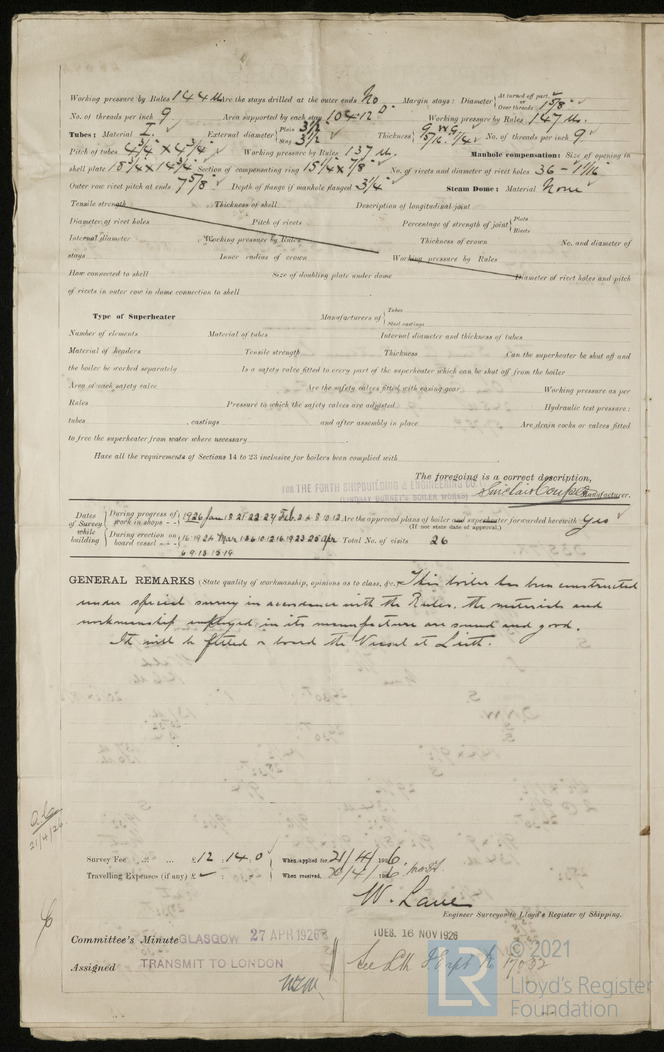 Working pressure by Rules 144 lb Are the stays drilled at the outer ends No Margin stays: Diameter { At turned off part, or Over threads 1 5/8"
No. of threads per inch 9 Area supported by each stay 104.12 Working pressure by Rules 147 lb.
Tubes: Material I. External diameter { Plain 3 1/2 Stay 3 1/2 Thickness { 9 W.G. 5/16 . 1/4 No. of threads per inch 9
Pitch of tubes 4 3/4 x 4 3/4 Working pressure by Rules 137 lb. Manhole compensation: Size of opening in
shell plate 18 3/4 x 14 3/4 Section of compensating ring 15 1/4 x 7/8 No. of rivets and diameter of rivet holes 36 - 1 1/16
Outer row rivet pitch at ends 7 5/8 Depth of flange if manhole flanged 3 3/4 Steam Dome: Material None
Tensile strength Thickness of shell Description of longitudinal joint
Diameter of rivet holes Pitch of rivets Percentage of strength of joint { Plate Rivets
Internal diameter Working pressure by Rules Thickness of crown No. and diameter of
stays Inner radius of crown Working pressure by Rules
How connected to shell Size of doubling plate under dome Diameter of rivet holes and pitch
of rivets in outer row in dome connection to shell
Type of Superheater Manufacturers of { Tubes Steel castings
Number of elements Material of tubes Internal diameter and thickness of tubes
Material of headers Tensile strength Thickness Can the superheater be shut off and
the boiler be worked separately Is a safety valve fitted to every part of the superheater which can be shut off from the boiler
Area of each safety valve Are the safety valves fitted with easing gear Working pressure as per
Rules Pressure to which the safety valves are adjusted Hydraulic test pressure:
tubes , castings and after assembly in place Are drain cocks or valves fitted
to free the superheater from water where necessary
Have all the requirements of Sections 14 to 23 inclusive for boilers been complied with
The foregoing is a correct description,
FOR THE FORTH SHIPBUILDING & ENGINEERING CO.
(LINDSAY BURNET'S BOILER WORKS) Sinclair Couper Manufacturer.
Dates of Survey while building { During progress of work in shops - - 1926 Jan 18 21 22 24 Feb 2 4 8 10 12 Are the approved plans of boiler and superheater forwarded herewith Yes
(If not state date of approval.)
During erection on board vessel - - - 16 19 24 Mar 1 3 6 10 12 16 19 23 25 Apr Total No. of visits 26
6 9 13 15 19
GENERAL REMARKS (State quality of workmanship, opinions as to class, &c. This boiler has been constructed
under special survey in accordance with the Rules. the materials and
workmanship employed in its manufacture are sound and good.
It will be fitted on board the Vessel at Leith.
21/4/26
Survey Fee ... ... £ 12 : 14 . 0 When applied for, 21/4/1926.
Travelling Expenses (if any) £ : : When received, /4/1926
W. Lane
Engineer Surveyor to Lloyd's Register of Shipping.
Committee's Minute GLASGOW 27 APR 1926 TUES. 16 NOV 1926
Assigned TRANSMIT TO LONDON
See Lth
© 2021
LR Lloyd's Register
Foundation